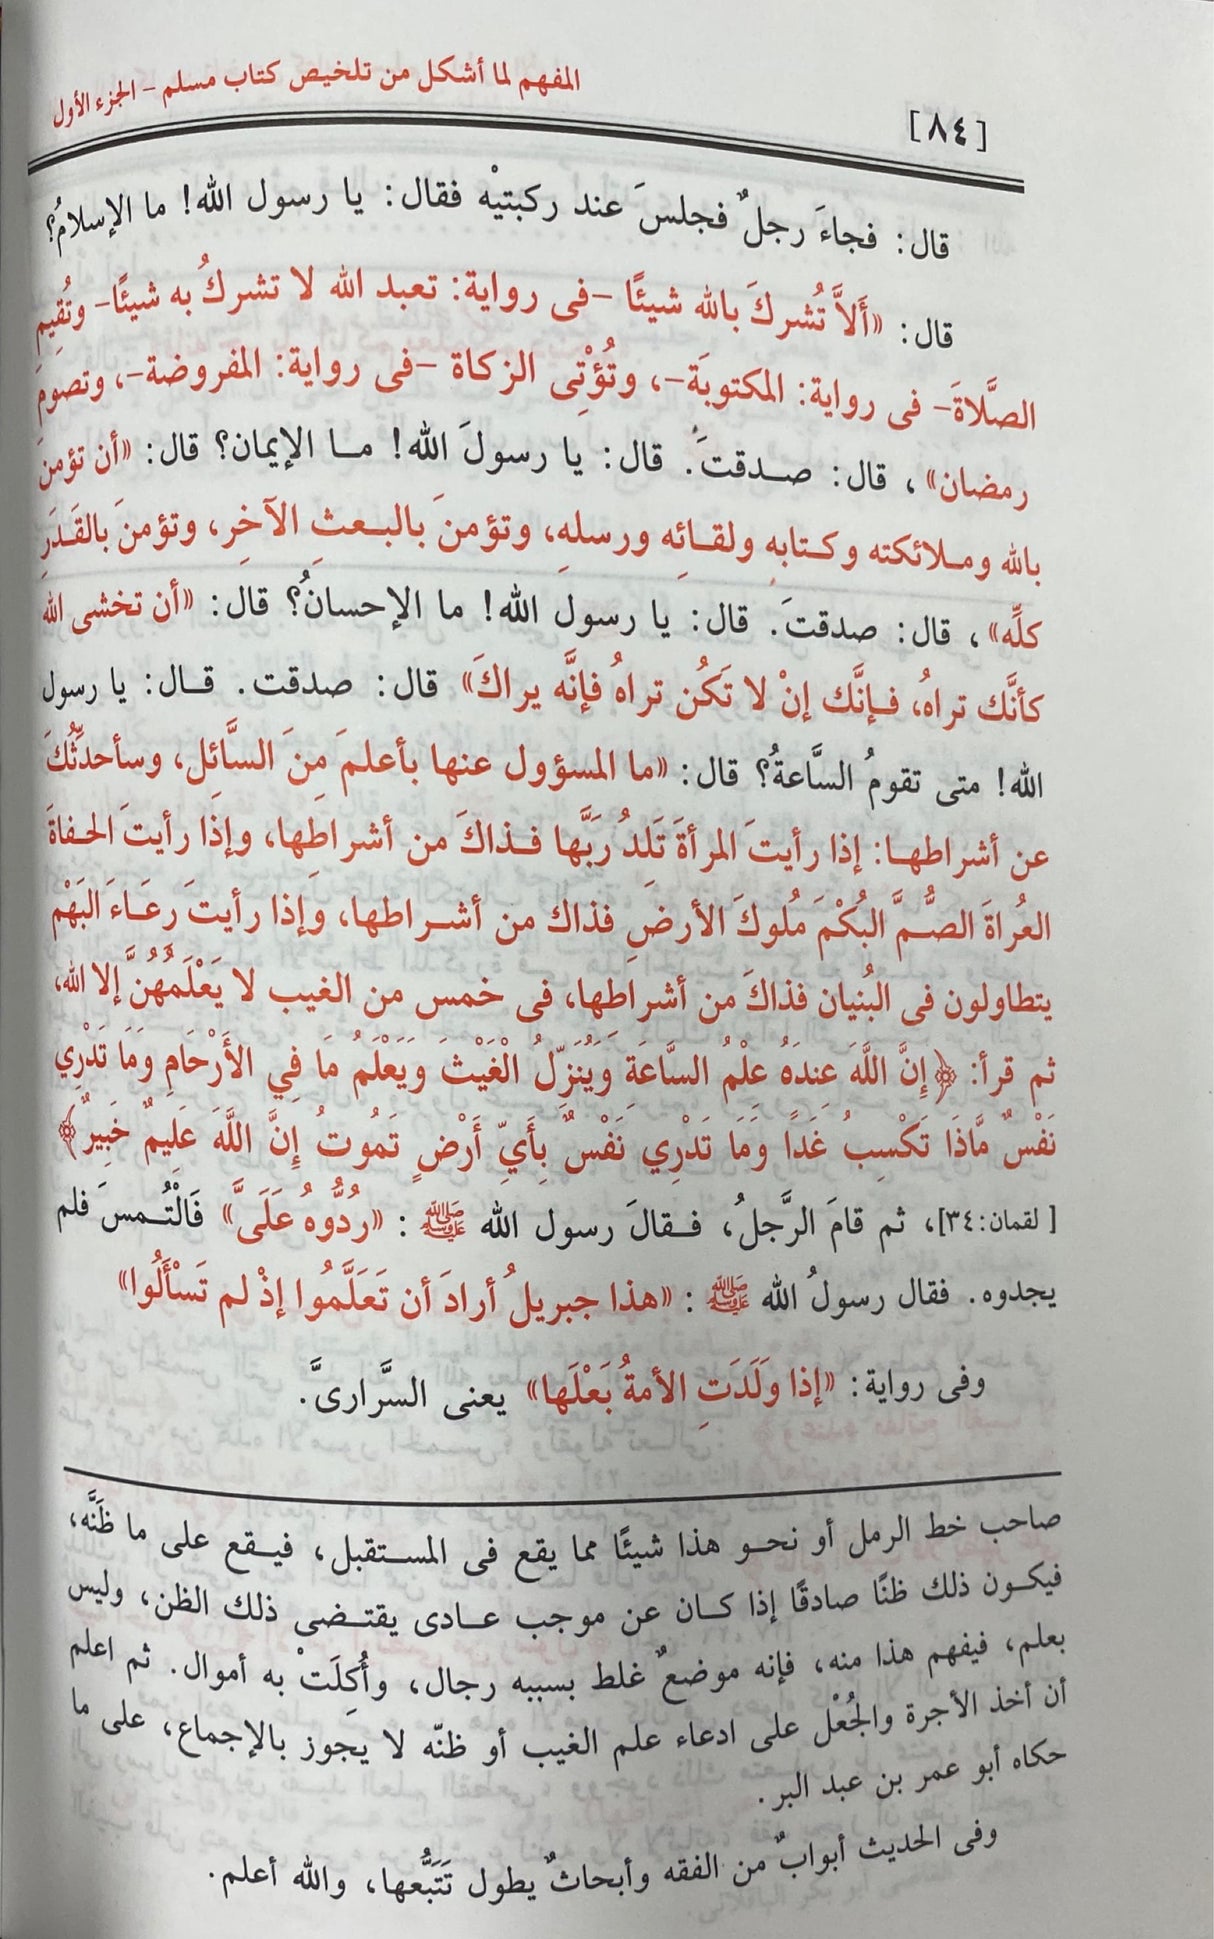 المفهم لما أشكل من تلخيص كتاب مسلم - الجزء الأول
[٨٤]
قال: فجاءَ رجلٌ فجلسَ عند ركبتيْه فقال: يا رسول الله! ما الإسلامُ؟
قال: «أَلاَّ تُشركَ بالله شيئًا -فى رواية: تعبد الله لا تشركُ به شيئًا- وتُقيم
الصَّلاةَ- فى رواية: المكتوبَة-، وتُؤْتِى الزكاة -فى رواية: المفروضة-، وتصومَ
رمضان» ، قال: صدقتَ. قال: يا رسولَ الله! ما الإيمان؟ قال: «أن تؤمنَ
بالله وملائكته وكتابِه ولقائِه ورسلهِ، وتؤمنَ بالبعثِ الآخرِ، وتؤمنَ بالقَدَرِ
كلِّه» ، قال: صدقتَ. قال: يا رسول الله! ما الإحسانُ؟ قال: «أن تخشى الله
كأنَّك تراهُ، فإنَّك إنْ لا تَكُن تراهُ فإنَّه يراكَ» قال: صدقت. قال: يا رسول
الله! متى تقومُ السَّاعةُ؟ قال: «ما المسؤول عنها بأعلمَ مِنَ السَّائلِ، وسأحدِّثُكَ
عن أشراطها: إذا رأيتَ المرأةَ تَلدُ رَبَّها فذاكَ من أشراطِها، وإذا رأيتَ الحفاةَ
العُراةَ الصُّمَّ البُكْمَ مُلوكَ الأرضِ فذاك من أشراطها، وإذا رأيتَ رعَاءَ البَهْم
يتطاولون فى البُنيان فذاكَ من أشراطها، فى خمس من الغيب لا يَعْلَمُهُنَّ إلا الله،
ثم قرأ: ﴿إِنَّ اللَّهَ عِندَهُ عِلْمُ السَّاعَةِ وَيُنَزِّلُ الْغَيْثَ وَيَعْلَمُ مَا فِي الأَرْحَامِ وَمَا تَدْرِي
نَفْسٌ مَّاذَا تَكْسِبُ غَدًا وَمَا تَدْرِي نَفْسٌ بِأَيِّ أَرْضٍ تَمُوتُ إِنَّ اللَّهَ عَلِيمٌ خَبِيرٌ﴾
[ لقمان:٣٤]، ثم قامَ الرَّجلُ، فقالَ رسول الله ﷺ : «رُدُّوهُ عَلَىَّ» فَالْتُمسَ فلم
يجدوه. فقال رسولُ الله ﷺ : «هذا جبريلُ أرادَ أن تَعَلَّمُوا إذْ لم تَسْأَلُوا»
وفى رواية: «إذا وَلَدَتِ الأمةُ بَعْلَها» يعنى السَّرارىَّ.
صاحب خط الرمل أو نحو هذا شيئًا مما يقع فى المستقبل، فيقع على ما ظَنَّه،
فيكون ذلك ظنًا صادقًا إذا كان عن موجب عادى يقتضى ذلك الظن، وليس
بعلم، فيفهم هذا منه، فإنه موضعٌ غلط بسببه رجال، وأُكِلَتْ به أموال. ثم اعلم
أن أخذ الأجرة والجُعْل على ادعاء علم الغيب أو ظنّه لا يجوز بالإجماع، على ما
حكاه أبو عمر بن عبد البر.
وفى الحديث أبوابٌ من الفقه وأبحاثٌ يطول تَتَبُّعها، والله أعلم.